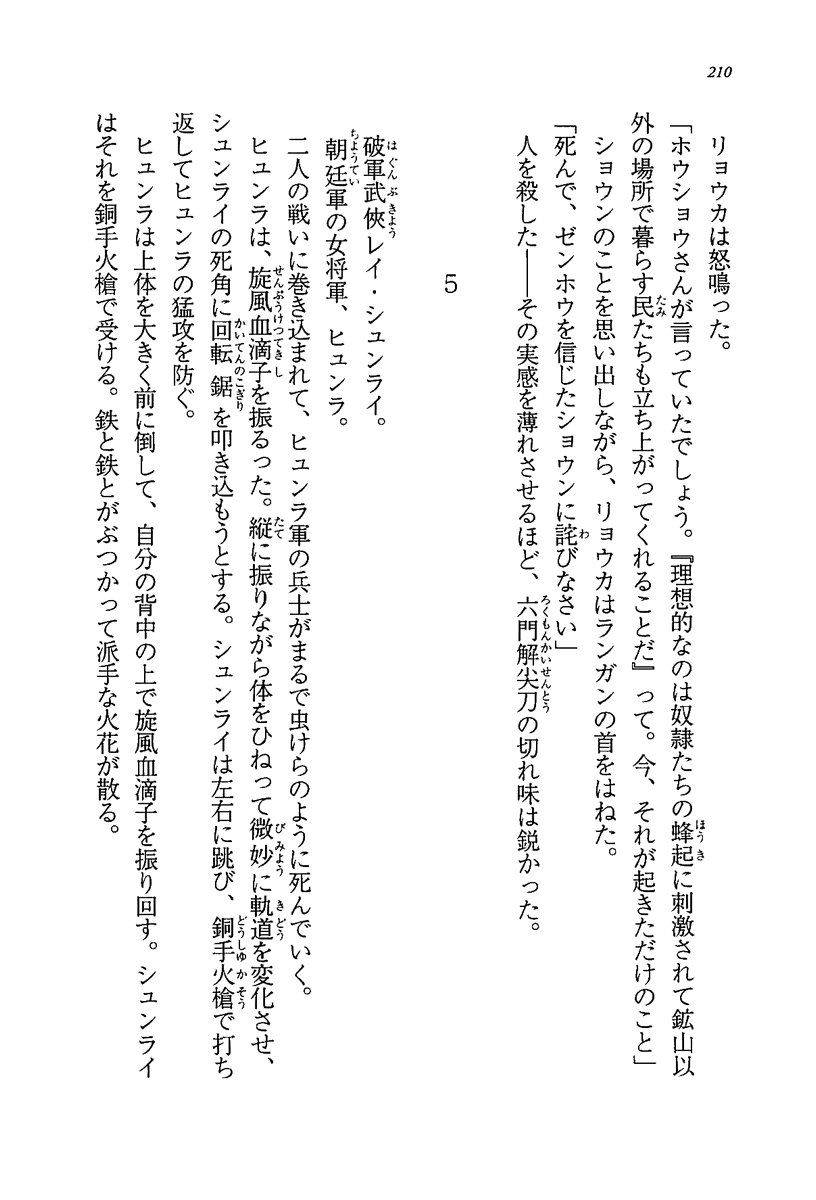 210
リョウカは怒鳴った。
「ホウショウさんが言っていたでしょう。『理想的なのは奴隷たちの蜂起に刺激されて鉱山以
外の場所で暮らす民たちも立ち上がってくれることだ』って。今、それが起きただけのこと」
ショウンのことを思い出しながら、リョウカはランガンの首をはねた。
「死んで、ゼンホウを信じたショウンに詫びなさい」
人を殺した――その実感を薄れさせるほど、六門解尖刀の切れ味は鋭かった。
5
破軍武侠レイ・シュンライ。
朝廷軍の女将軍、ヒュンラ。
二人の戦いに巻き込まれて、ヒュンラ軍の兵士がまるで虫けらのように死んでいく。
ヒュンラは、旋風血滴子を振るった。縦に振りながら体をひねって微妙に軌道を変化させ、
シュンライの死角に回転鋸を叩き込もうとする。シュンライは左右に跳び、銅手火槍で打ち
返してヒュンラの猛攻を防ぐ。
ヒュンラは上体を大きく前に倒して、自分の背中の上で旋風血滴子を振り回す。シュンライ
はそれを銅手火槍で受ける。鉄と鉄とがぶつかって派手な火花が散る。